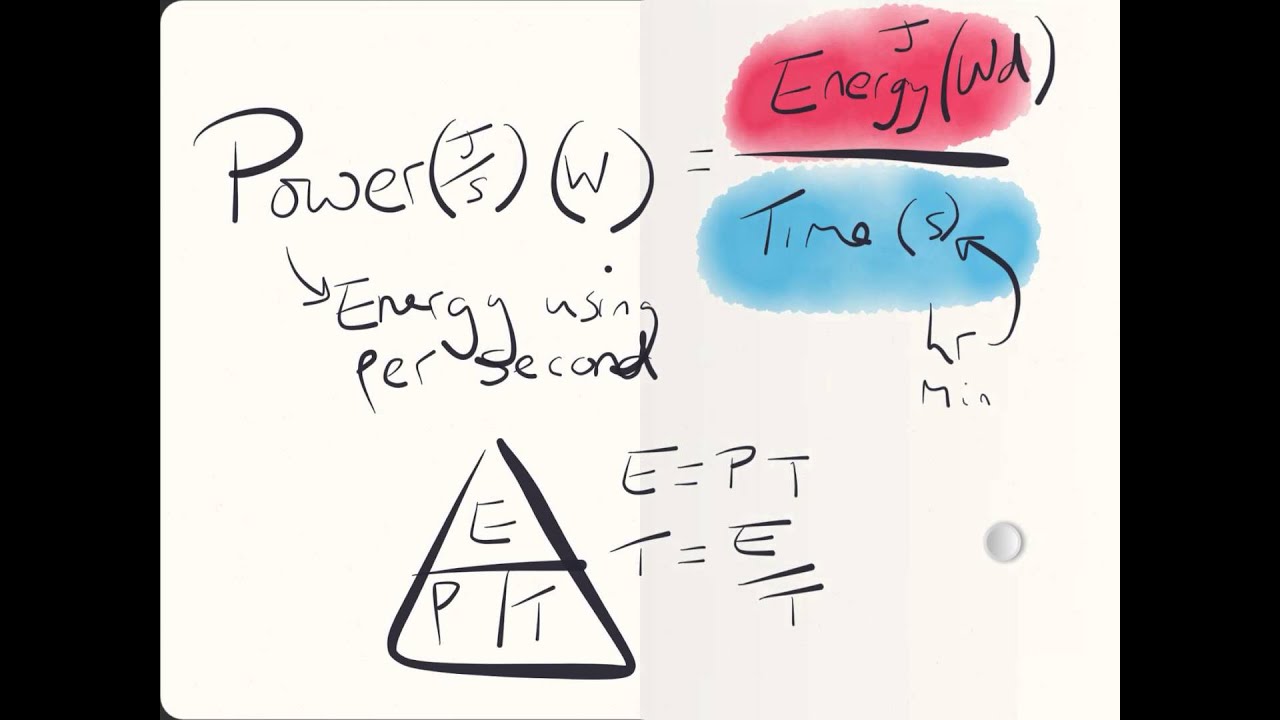 Power (J/s) (W) = Energy (Wd) / Time (s)
J
Energy using
per second
hr
Min
E
P T
E = P T
T = E / T